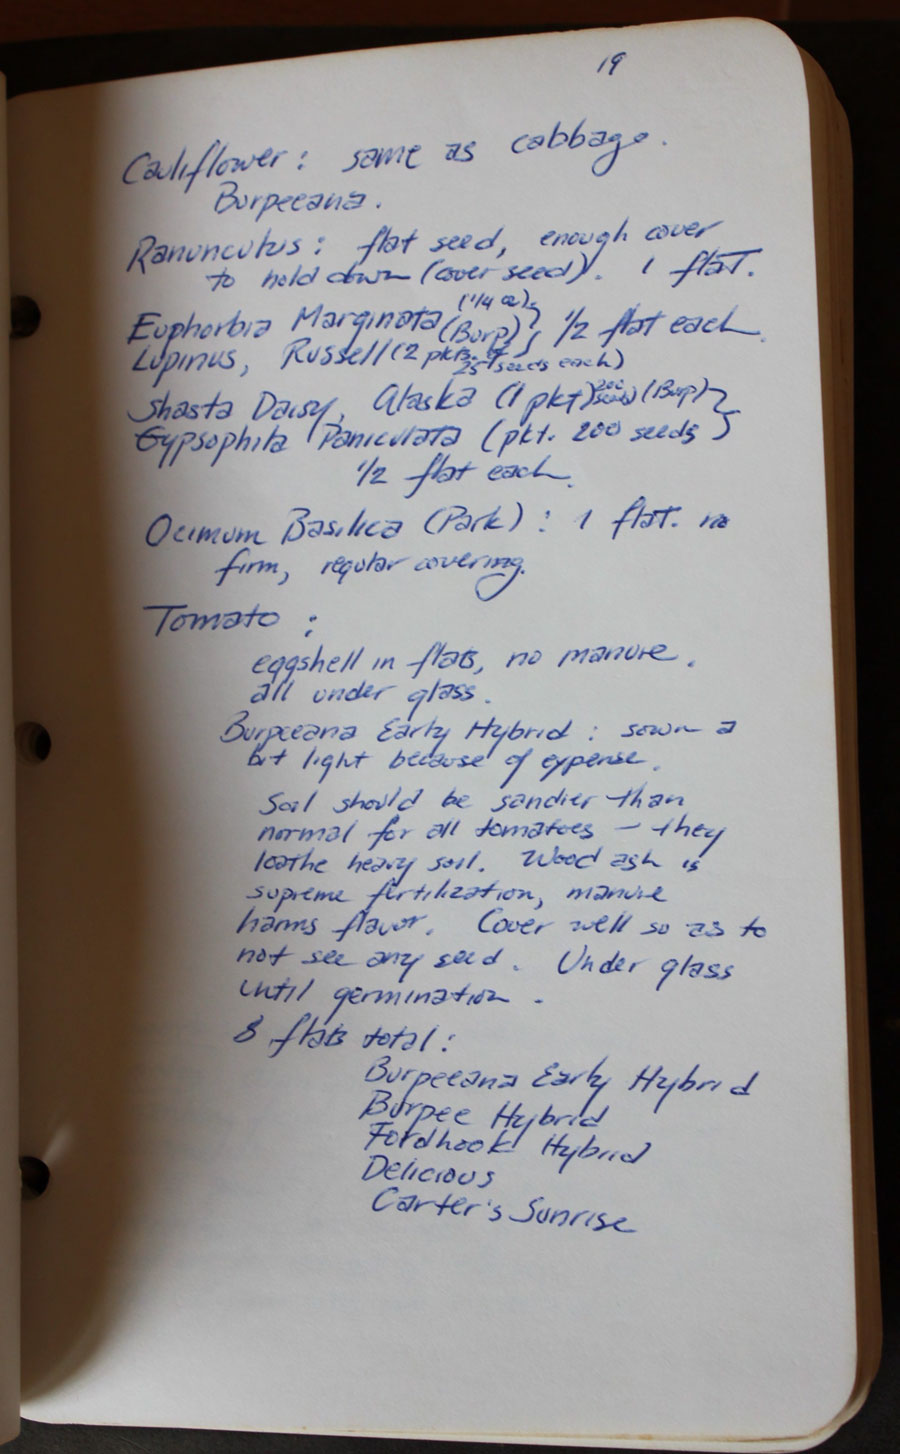 19
Cauliflower: same as cabbage.
Burpeeana.
Ranunculus: flat seed, enough cover
to hold down (cover seed). 1 flat.
Euphorbia Marginata (1/4 oz) (Burp) } 1/2 flat each.
Lupinus, Russell (2 pkts. 25 seeds each)
Shasta Daisy, Alaska (1 pkt) 200 seeds (Burp) }
Gypsophila Paniculata (pkt. 200 seeds }
1/2 flat each.
Ocimum Basilica (Park): 1 flat. no
firm, regular covering.
Tomato:
eggshell in flats, no manure.
all under glass.
Burpeeana Early Hybrid: sown a
bit light because of expense.
Soil should be sandier than
normal for all tomatoes — they
loathe heavy soil. Wood ash is
supreme fertilization, manure
harms flavor. Cover well so as to
not see any seed. Under glass
until germination.
8 flats total:
Burpeeana Early Hybrid
Burpee Hybrid
Fordhook Hybrid
Delicious
Carter's Sunrise